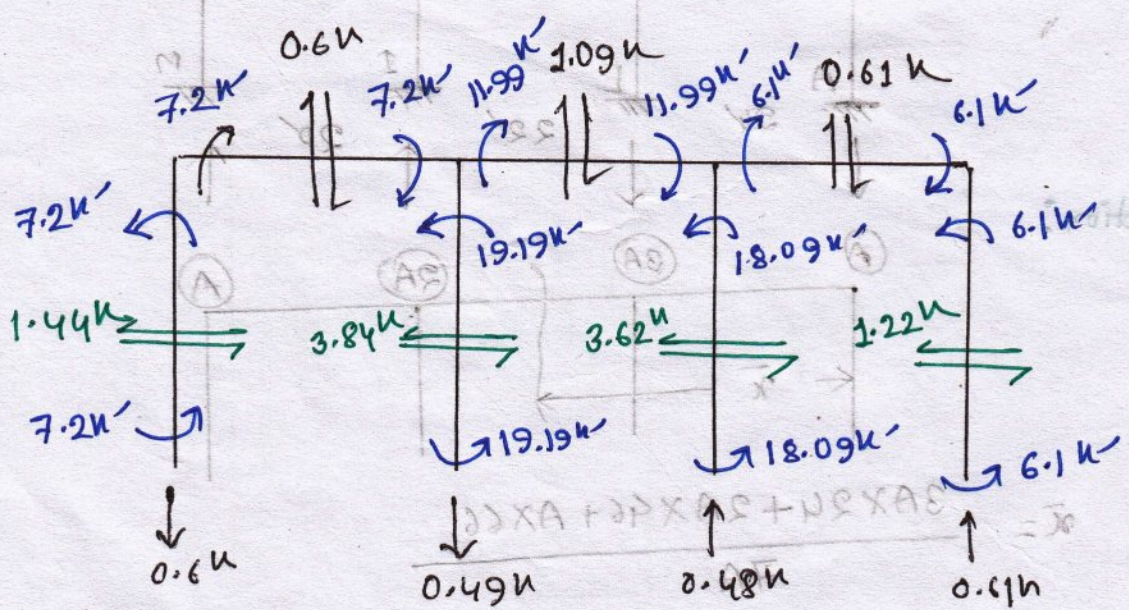 0.6k
1.09k
0.61k
7.2k'
7.2k'
11.99k'
11.99k'
6.1k'
6.1k'
7.2k'
19.19k'
18.09k'
6.1k'
1.44k
3.84k
3.62k
1.22k
7.2k'
19.19k'
18.09k'
6.1k'
0.6k
0.49k
0.48k
0.61k